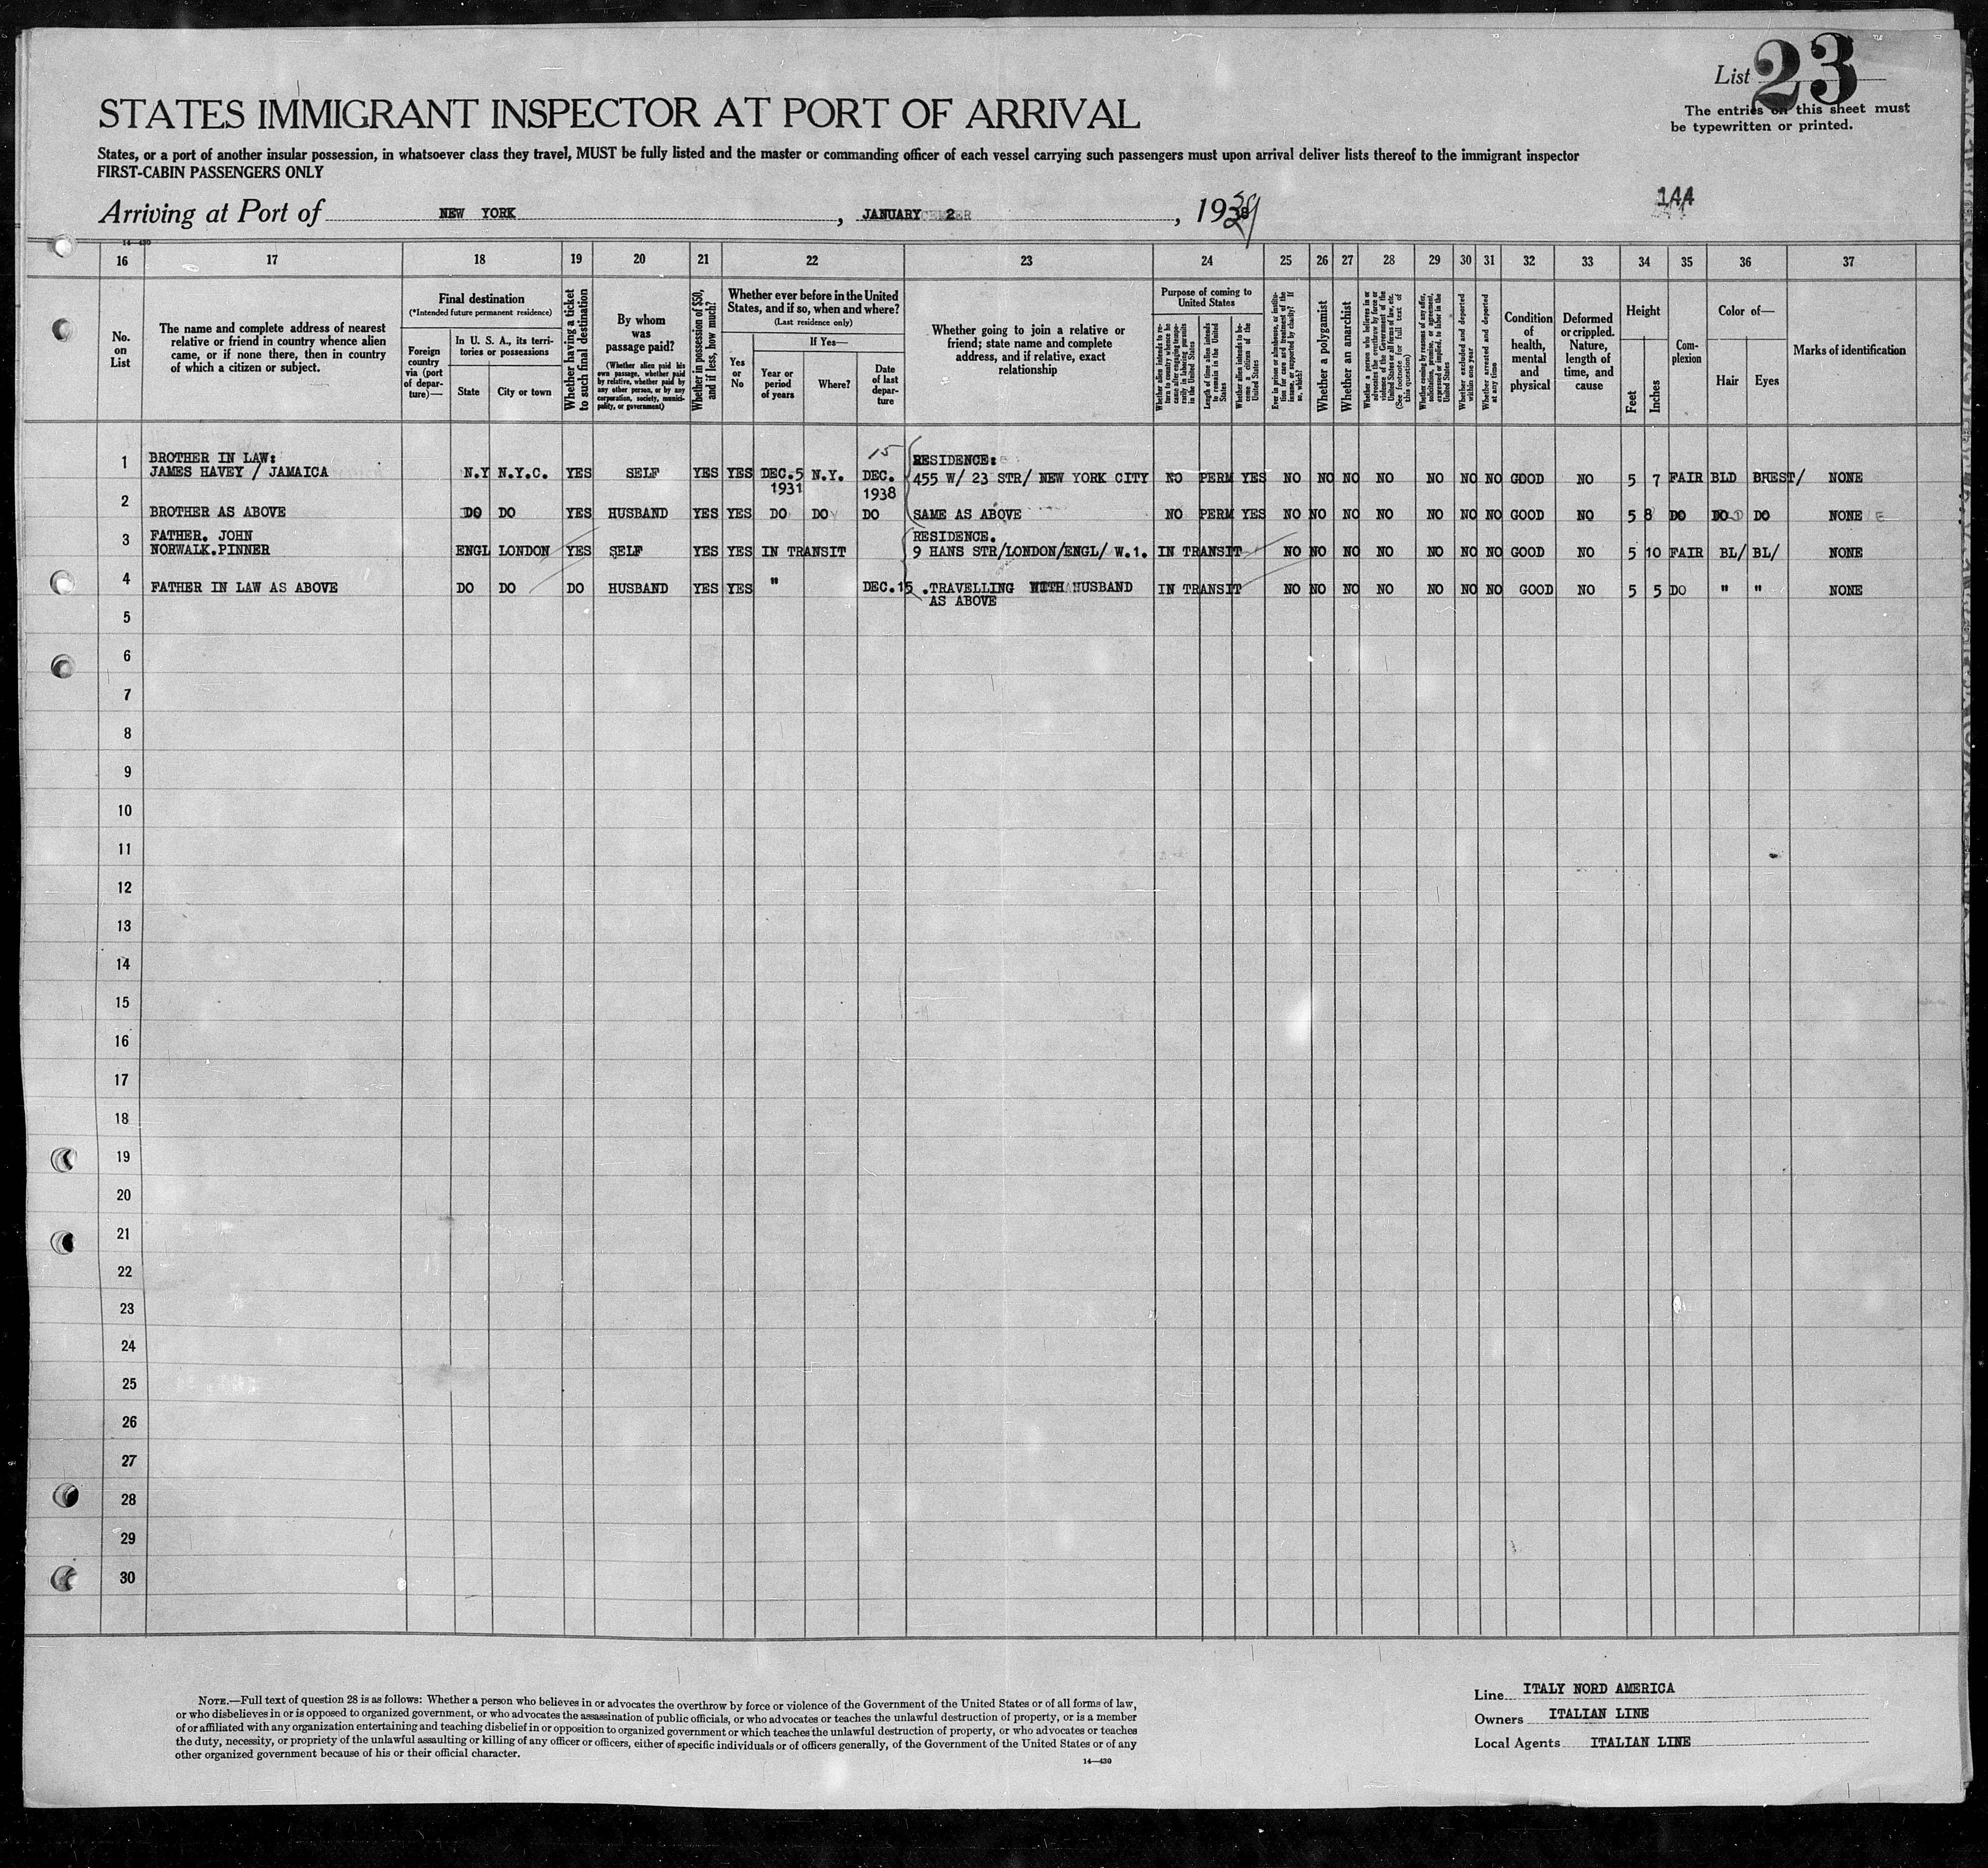 List 23
The entries on this sheet must
be typewritten or printed.
STATES IMMIGRANT INSPECTOR AT PORT OF ARRIVAL
States, or a port of another insular possession, in whatsoever class they travel, MUST be fully listed and the master or commanding officer of each vessel carrying such passengers must upon arrival deliver lists thereof to the immigrant inspector
FIRST-CABIN PASSENGERS ONLY
144
Arriving at Port of NEW YORK, JANUARY 2, 1939
14—430
16 17 18 19 20 21 22 23 24 25 26 27 28 29 30 31 32 33 34 35 36 37
No. on List
The name and complete address of nearest
relative or friend in country whence alien
came, or if none there, then in country
of which a citizen or subject.
Final destination
(*Intended future permanent residence)
Foreign country via (port of departure)—
In U. S. A., its territories or possessions
State
City or town
Whether having a ticket to such final destination
By whom was passage paid?
(Whether alien paid his own passage, whether paid by relative, whether paid by any other person, or by any corporation, society, municipality, or government)
Whether in possession of $50, and if less, how much?
Whether ever before in the United States, and if so, when and where?
(Last residence only)
Yes or No
If Yes—
Year or period of years
Where?
Date of last departure
Whether going to join a relative or
friend; state name and complete
address, and if relative, exact
relationship
Purpose of coming to United States
Whether alien intends to return to country whence he came after engaging temporarily in laboring pursuits in the United States
Length of time alien intends to remain in the United States
Whether alien intends to become a citizen of the United States
Ever in prison or almshouse, or institution for care and treatment of the insane, or supported by charity? If so, which?
Whether a polygamist
Whether an anarchist
Whether a person who believes in or advocates the overthrow by force or violence of the Government of the United States or all forms of law, etc. (See footnote for full text of this question)
Whether coming by reason of any offer, solicitation, promise, or agreement, expressed or implied, to labor in the United States
Whether excluded and deported within one year
Whether arrested and deported at any time
Condition of health, mental and physical
Deformed or crippled. Nature, length of time, and cause
Height
Feet
Inches
Complexion
Color of—
Hair
Eyes
Marks of identification
1 BROTHER IN LAW: 15 RESIDENCE:
JAMES HAVEY / JAMAICA N.Y N.Y.C. YES SELF YES YES DEC.5 1931 N.Y. DEC. 1938 455 W/ 23 STR/ NEW YORK CITY NO PERM YES NO NO NO NO NO NO NO GOOD NO 5 7 FAIR BLD BHEST/ NONE
2 BROTHER AS ABOVE DO DO YES HUSBAND YES YES DO DO DO SAME AS ABOVE NO PERM YES NO NO NO NO NO NO NO GOOD NO 5 8 DO DO DO NONE
3 FATHER. JOHN RESIDENCE.
NORWALK.PINNER ENGL LONDON YES SELF YES YES IN TRANSIT 9 HANS STR/LONDON/ENGL/ W.1. IN TRANSIT NO NO NO NO NO NO NO GOOD NO 5 10 FAIR BL/ BL/ NONE
4 FATHER IN LAW AS ABOVE DO DO DO HUSBAND YES YES " DEC.15 .TRAVELLING WITH HUSBAND IN TRANSIT NO NO NO NO NO NO NO GOOD NO 5 5 DO " " NONE
AS ABOVE
5
6
7
8
9
10
11
12
13
14
15
16
17
18
19
20
21
22
23
24
25
26
27
28
29
30
NOTE.—Full text of question 28 is as follows: Whether a person who believes in or advocates the overthrow by force or violence of the Government of the United States or of all forms of law,
or who disbelieves in or is opposed to organized government, or who advocates the assassination of public officials, or who advocates or teaches the unlawful destruction of property, or is a member
of or affiliated with any organization entertaining and teaching disbelief in or opposition to organized government or which teaches the unlawful destruction of property, or who advocates or teaches
the duty, necessity, or propriety of the unlawful assaulting or killing of any officer or officers, either of specific individuals or of officers generally, of the Government of the United States or of any
other organized government because of his or their official character.
14—430
Line ITALY NORD AMERICA
Owners ITALIAN LINE
Local Agents ITALIAN LINE